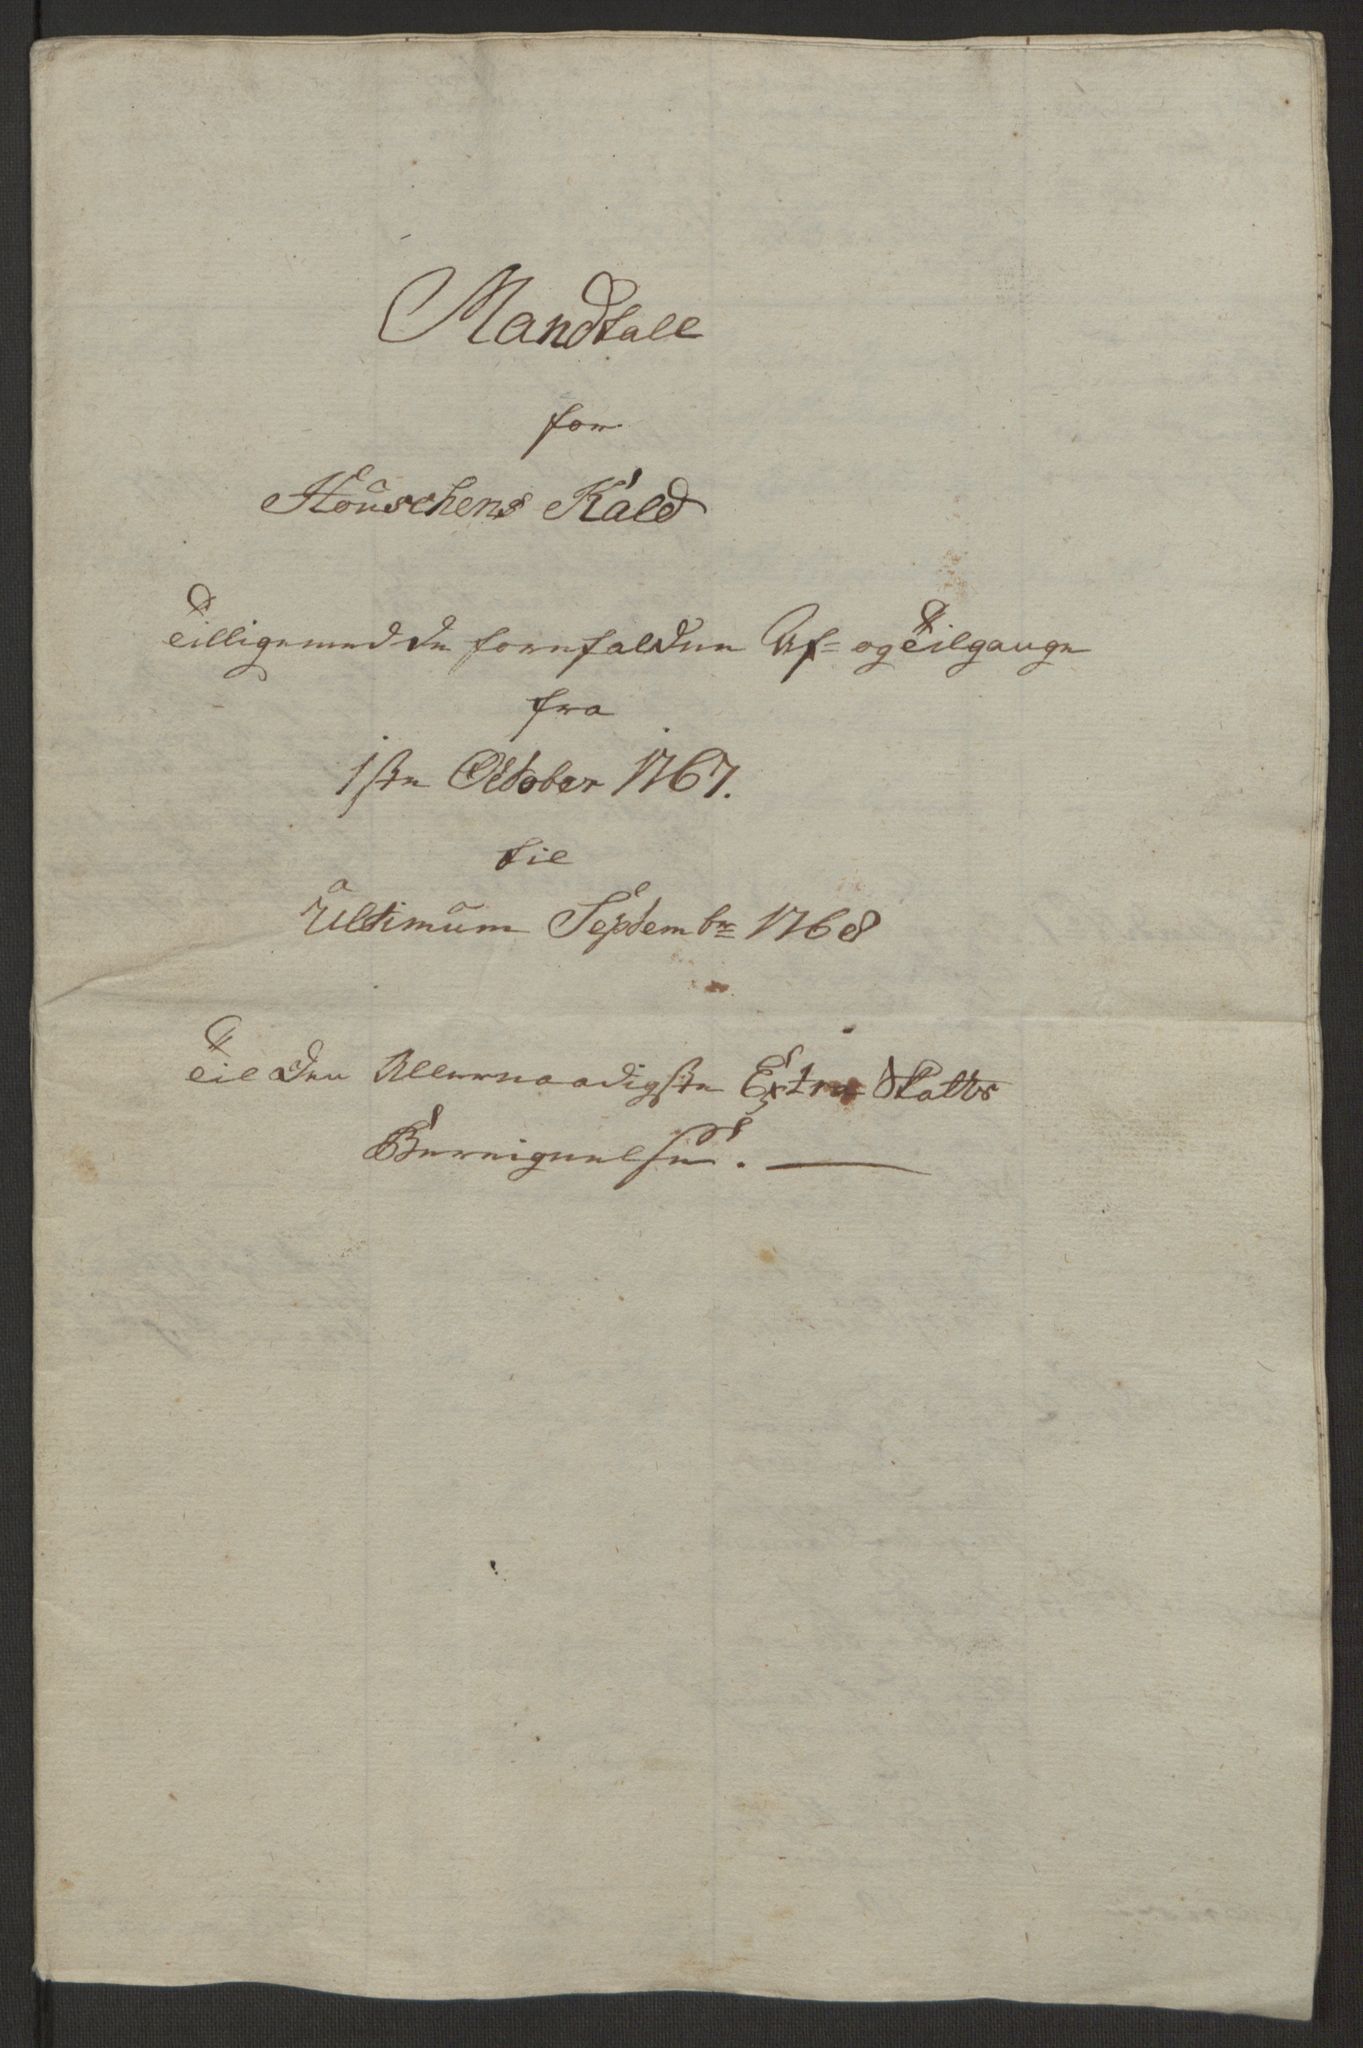 Mandtall
for
Houschens Kald
Tilligemed de forefaldene Af- og Tilgange
fra
1ste October 1767.
til
Ultimum Septembr 1768
Til den Allernaadigste Extra Skatts
Beregnelse.